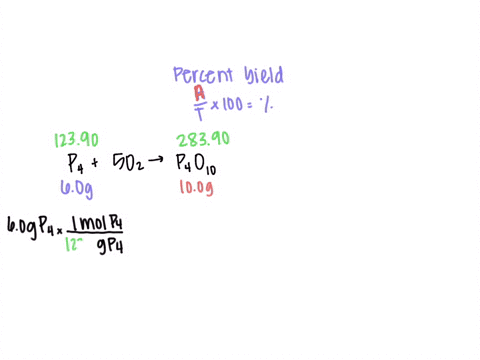 Percent yield
A/T × 100 = %
123.90 283.90
P₄ + 5O₂ → P₄O₁₀
6.0g 10.0g
6.0g P₄ × 1 mol P₄ / 12 g P₄